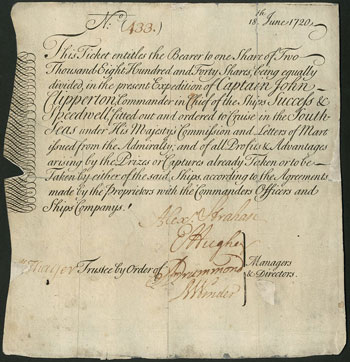 N.º (433.) 18.th June 1720.
This Ticket entitles the Bearer to one Share of Two
Thousand Eight Hundred and Forty Shares, being equally
divided, in the present Expedition of Captain John
Clipperton, Commander in Chief of the Ships Success &
Speedwell, fitted out and ordered to Cruise in the South-
Seas under His Majesty's Commission and Letters of Mart
issued from the Admiralty, and of all Profits & Advantages
arising by the Prizes or Captures already Token or to be
Taken by either of the said Ships, according to the Agreements
made by the Proprietors with the Commanders Officers and
Ships Companys.
Alex.r Strahan
E Hughes
Trustee by Order of Drummond Managers
& Directors.
Winder